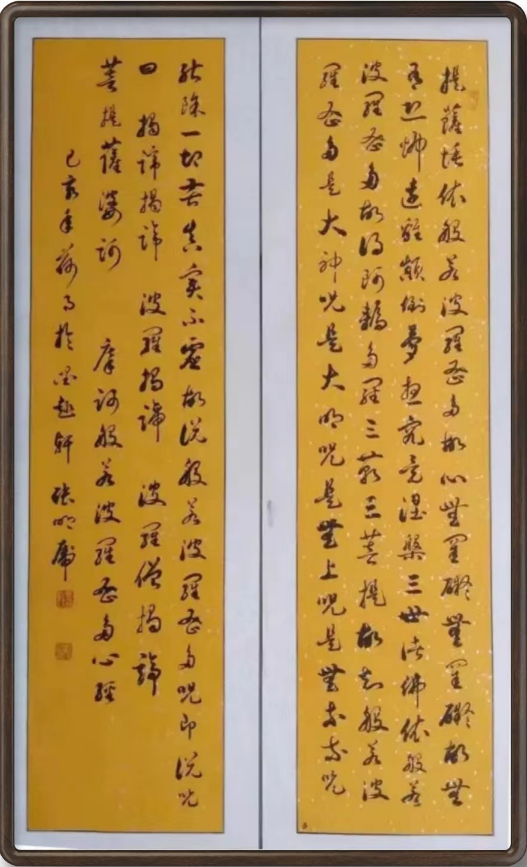 提薩埵依般若波羅蜜多故心無罣礙無罣礙故無
有恐怖遠離顛倒夢想究竟涅槃三世諸佛依般若
波羅蜜多故得阿耨多羅三藐三菩提故知般若波
羅蜜多是大神呪是大明呪是無上呪是無等等呪
能除一切苦真實不虛故說般若波羅蜜多呪即說呪
曰 揭諦揭諦 波羅揭諦 波羅僧揭諦
菩提薩婆訶 摩訶般若波羅蜜多心經
己亥年月於墨趣軒 張明